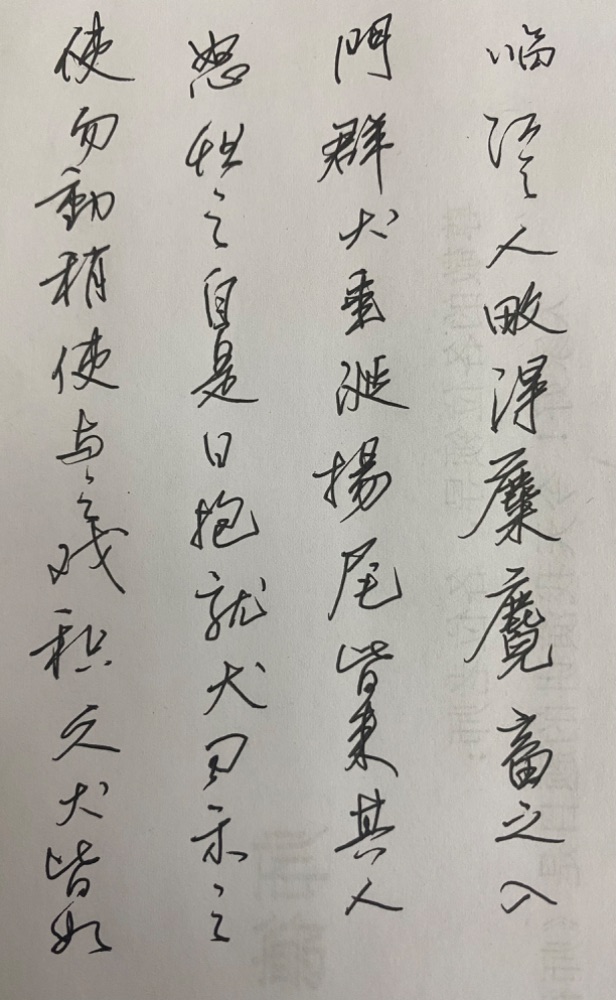 临江之人畋得麋麑畜之入
門群犬垂涎揚尾皆来其人
怒怛之自是日抱就犬習示之
使勿動稍使与之戏积久犬皆如